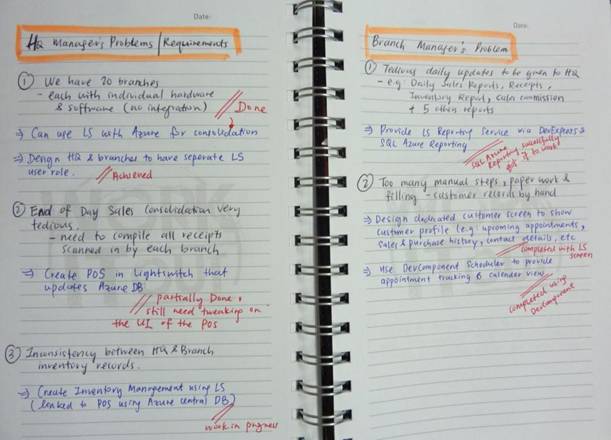 Date:
HQ Manager's Problems/Requirements
① We have 20 branches
- each with individual hardware
& software (no integration)
Done
⇒ Can use LS with Azure for consolidation
⇒ Design HQ & branches to have seperate LS
user role.
Achieved
② End of Day Sales Consolidation very
tedious.
- need to compile all receipts
scanned in by each branch.
⇒ Create POS in Lightswitch that
updates Azure DB
partially Done,
still need tweaking on
the UI of the POS
③ Inconsistency between HQ & Branch
inventory records.
⇒ Create Inventory Management using LS
(linked to POS using Azure Central DB)
work in progress
Date:
Branch Manager's Problem
① Tedious daily updates to be given to HQ
- e.g. Daily Sales Reports, Receipts,
Inventory Report, Sales commission
+ 5 other reports
⇒ Provide LS Reporting Service via DevExpress &
SQL Azure Reporting
SQL Azure
Reporting successfully
got it to work
② Too many manual steps, paper work &
filling - customer records by hand
⇒ Design dedicated customer screen to show
customer profile (e.g. upcoming appointments,
sales & purchase history, contact details, etc
completed with LS
screen
⇒ Use DevComponent Scheduler to provide
appointment tracking & calender view
completed using
DevComponent